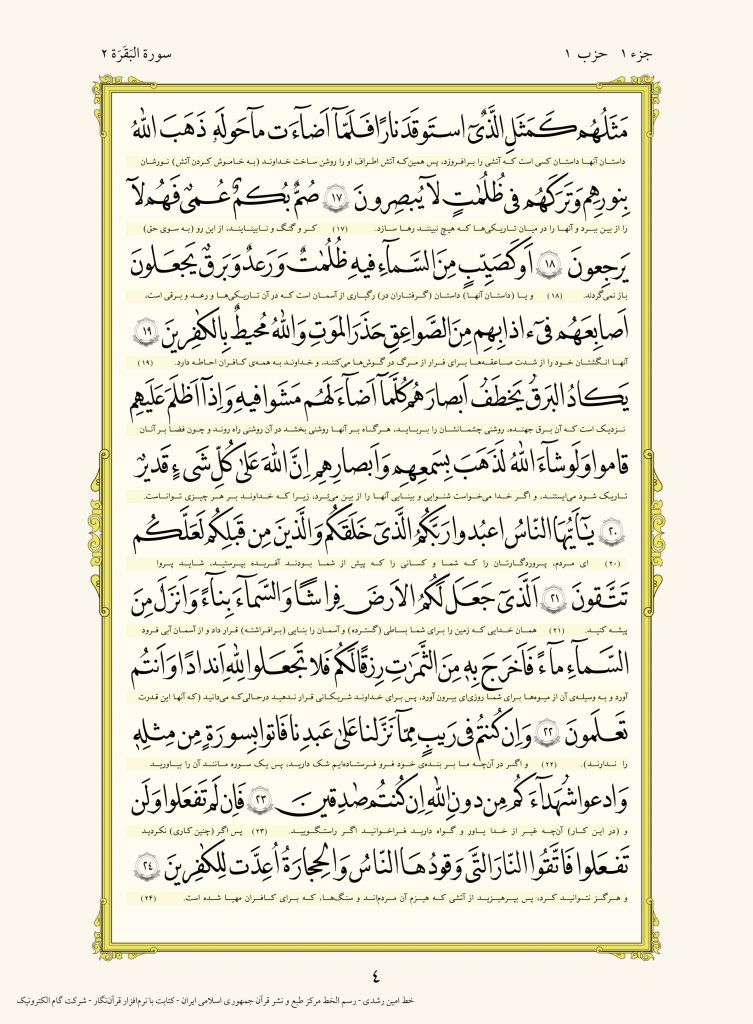 جزء ۱ حزب ۱ سورة البَقَرَة ۲
مَثَلُهُم كَمَثَلِ الَّذِی استَوقَدَ نارًا فَلَمّآ اَضآءَت ما حَولَهُ ذَهَبَ اللهُ
داستان آنها داستان کسی است که آتشی را برافروزد، پس همین‌که آتش اطراف او را روشن ساخت خداوند (به خاموش کردن آتش) نورشان
بِنورِهِم وَ تَرَکَهُم فی ظُلُمٰتٍ لا یُبصِرونَ ﴿۱۷﴾ صُمٌّ بُکمٌ عُمیٌ فَهُم لا
را از بین ببرد و آنها را در میان تاریکی‌ها که هیچ نبینند رها سازد. (۱۷) کر و گنگ و نابینایند، از این رو (به سوی حق)
یَرجِعونَ ﴿۱۸﴾ اَو کَصَیِّبٍ مِنَ السَّمآءِ فیهِ ظُلُمٰتٌ وَ رَعدٌ وَ بَرقٌ یَجعَلونَ
باز نمی‌گردند. (۱۸) و یا (داستان آنها) داستان (گرفتاران در) رگباری از آسمان است که در آن تاریکی‌ها و رعد و برقی است،
اَصابِعَهُم فی ءاذانِهِم مِنَ الصَّواعِقِ حَذَرَ المَوتِ وَ اللهُ مُحیطٌ بِالکٰفِرینَ ﴿۱۹﴾
آنها انگشتان خود را از شدت صاعقه‌ها برای فرار از مرگ در گوش‌ها می‌کنند، و خداوند به همه‌ی کافران احاطه دارد. (۱۹)
یَکادُ البَرقُ یَخطَفُ اَبصارَهُم کُلَّمآ اَضآءَ لَهُم مَشَوا فیهِ وَ اِذآ اَظلَمَ عَلَیهِم
نزدیک است که آن برق جهنده، روشنی چشمانشان را برباید، هرگاه بر آنها روشنی بخشد در آن روشنی راه روند و چون فضا بر آنان
قاموا وَ لَو شآءَ اللهُ لَذَهَبَ بِسَمعِهِم وَ اَبصارِهِم اِنَّ اللهَ عَلیٰ کُلِّ شَیءٍ قَدیرٌ
تاریک شود می‌ایستند، و اگر خدا می‌خواست شنوایی و بینایی آنها را از بین می‌بُرد، زیرا که خداوند بر هر چیزی تواناست.
﴿۲۰﴾ یٰۤاَیُّهَا النّاسُ اعبُدوا رَبَّکُمُ الَّذی خَلَقَکُم وَ الَّذینَ مِن قَبلِکُم لَعَلَّکُم
(۲۰) ای مردم، پروردگارتان را که شما و کسانی را که پیش از شما بودند آفریده بپرستید، شاید پروا
تَتَّقونَ ﴿۲۱﴾ اَلَّذی جَعَلَ لَکُمُ الاَرضَ فِراشًا وَ السَّمآءَ بِنآءً وَ اَنزَلَ مِنَ
پیشه کنید. (۲۱) همان خدایی که زمین را برای شما بساطی (گسترده) و آسمان را بنایی (برافراشته) قرار داد و از آسمان آبی فرود
السَّمآءِ مآءً فَاَخرَجَ بِهٖ مِنَ الثَّمَرٰتِ رِزقًا لَکُم فَلا تَجعَلوا لِلّٰهِ اَندادًا وَ اَنتُم
آورد و به وسیله‌ی آن از میوه‌ها برای شما روزی‌ای بیرون آورد، پس برای خداوند شریکانی قرار ندهید درحالی‌که می‌دانید (که آنها این قدرت
تَعلَمونَ ﴿۲۲﴾ وَ اِن کُنتُم فی رَیبٍ مِمّا نَزَّلنا عَلیٰ عَبدِنا فَأتوا بِسورَةٍ مِن مِثلِهٖ
را ندارند). (۲۲) و اگر در آن‌چه ما بر بنده‌ی خود فرو فرستاده‌ایم شک دارید، پس یک سوره مانند آن را بیاورید
وَ ادعوا شُهَدآءَکُم مِن دونِ اللهِ اِن کُنتُم صٰدِقینَ ﴿۲۳﴾ فَاِن لَم تَفعَلوا وَ لَن
و (در این کار) آن‌چه غیر از خدا یاور و گواه دارید فراخوانید اگر راستگویید. (۲۳) پس اگر (چنین کاری) نکردید
تَفعَلوا فَاتَّقُوا النّارَ الَّتی وَقودُهَا النّاسُ وَ الحِجارَةُ اُعِدَّت لِلکٰفِرینَ ﴿۲۴﴾
و هرگز نتوانید کرد، پس بپرهیزید از آتشی که هیزم آن مردم‌اند و سنگ‌ها، که برای کافران مهیا شده است. (۲۴)
٤
خط امین رشدی - رسم الخط مرکز طبع و نشر قرآن جمهوری اسلامی ایران - کتابت با نرم‌افزار قرآن‌نگار - شرکت گام الکترونیک